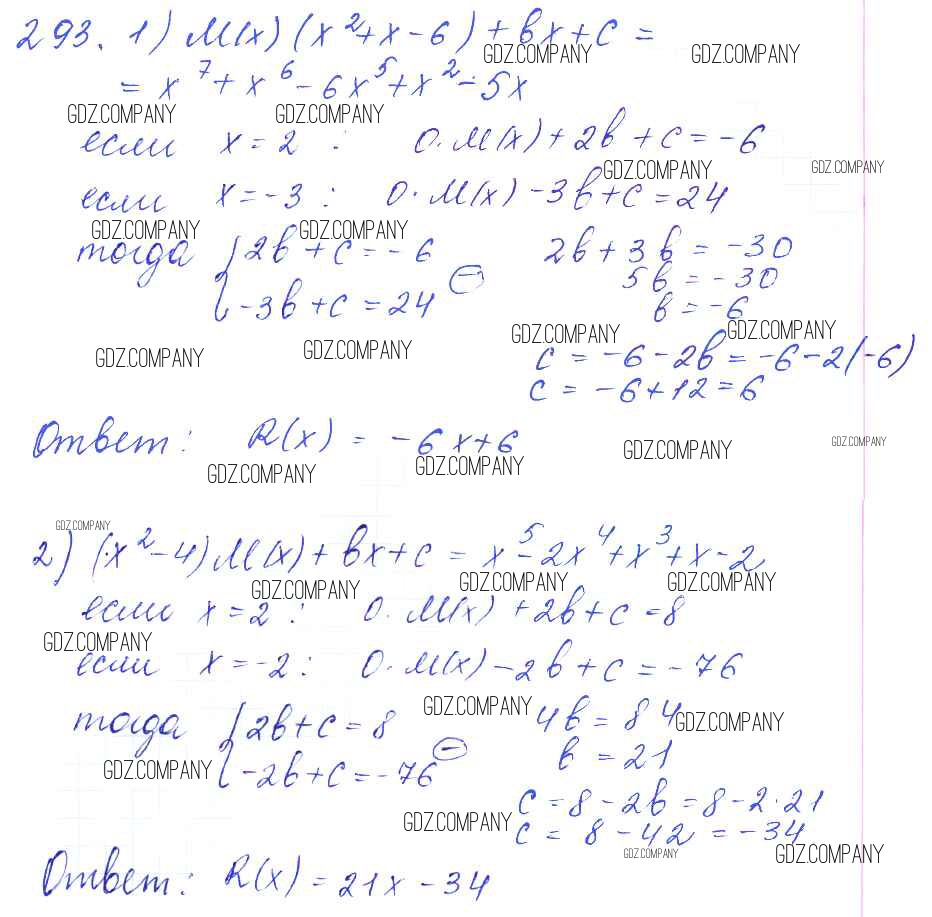 293. 1) M(x) (x²+x-6)+bx+c =
= x⁷+x⁶-6x⁵+x²-5x
GDZ.COMPANY GDZ.COMPANY
GDZ.COMPANY GDZ.COMPANY
если x = 2 : 0·M(x)+2b+c=-6
GDZ.COMPANY GDZ.COMPANY
если x=-3 : 0·M(x)-3b+c=24
GDZ.COMPANY GDZ.COMPANY
тогда {2b+c=-6 2b+3b=-30
{-3b+c=24 ⊖ 5b=-30
b=-6
GDZ.COMPANY GDZ.COMPANY
GDZ.COMPANY GDZ.COMPANY
c=-6-2b=-6-2(-6)
c=-6+12=6
Ответ: R(x) = -6x+6
GDZ.COMPANY GDZ.COMPANY
GDZ.COMPANY GDZ.COMPANY
GDZ.COMPANY
2) (x²-4)M(x)+bx+c = x⁵-2x⁴+x³+x-2
GDZ.COMPANY GDZ.COMPANY GDZ.COMPANY
если x=2 : 0·M(x)+2b+c=8
GDZ.COMPANY
если x=-2 : 0·M(x)-2b+c=-76
GDZ.COMPANY GDZ.COMPANY
тогда {2b+c=8 4b=84
{-2b+c=-76 ⊖ b=21
GDZ.COMPANY
c=8-2b=8-2·21
GDZ.COMPANY
c=8-42=-34
GDZ.COMPANY GDZ.COMPANY
Ответ: R(x)=21x-34